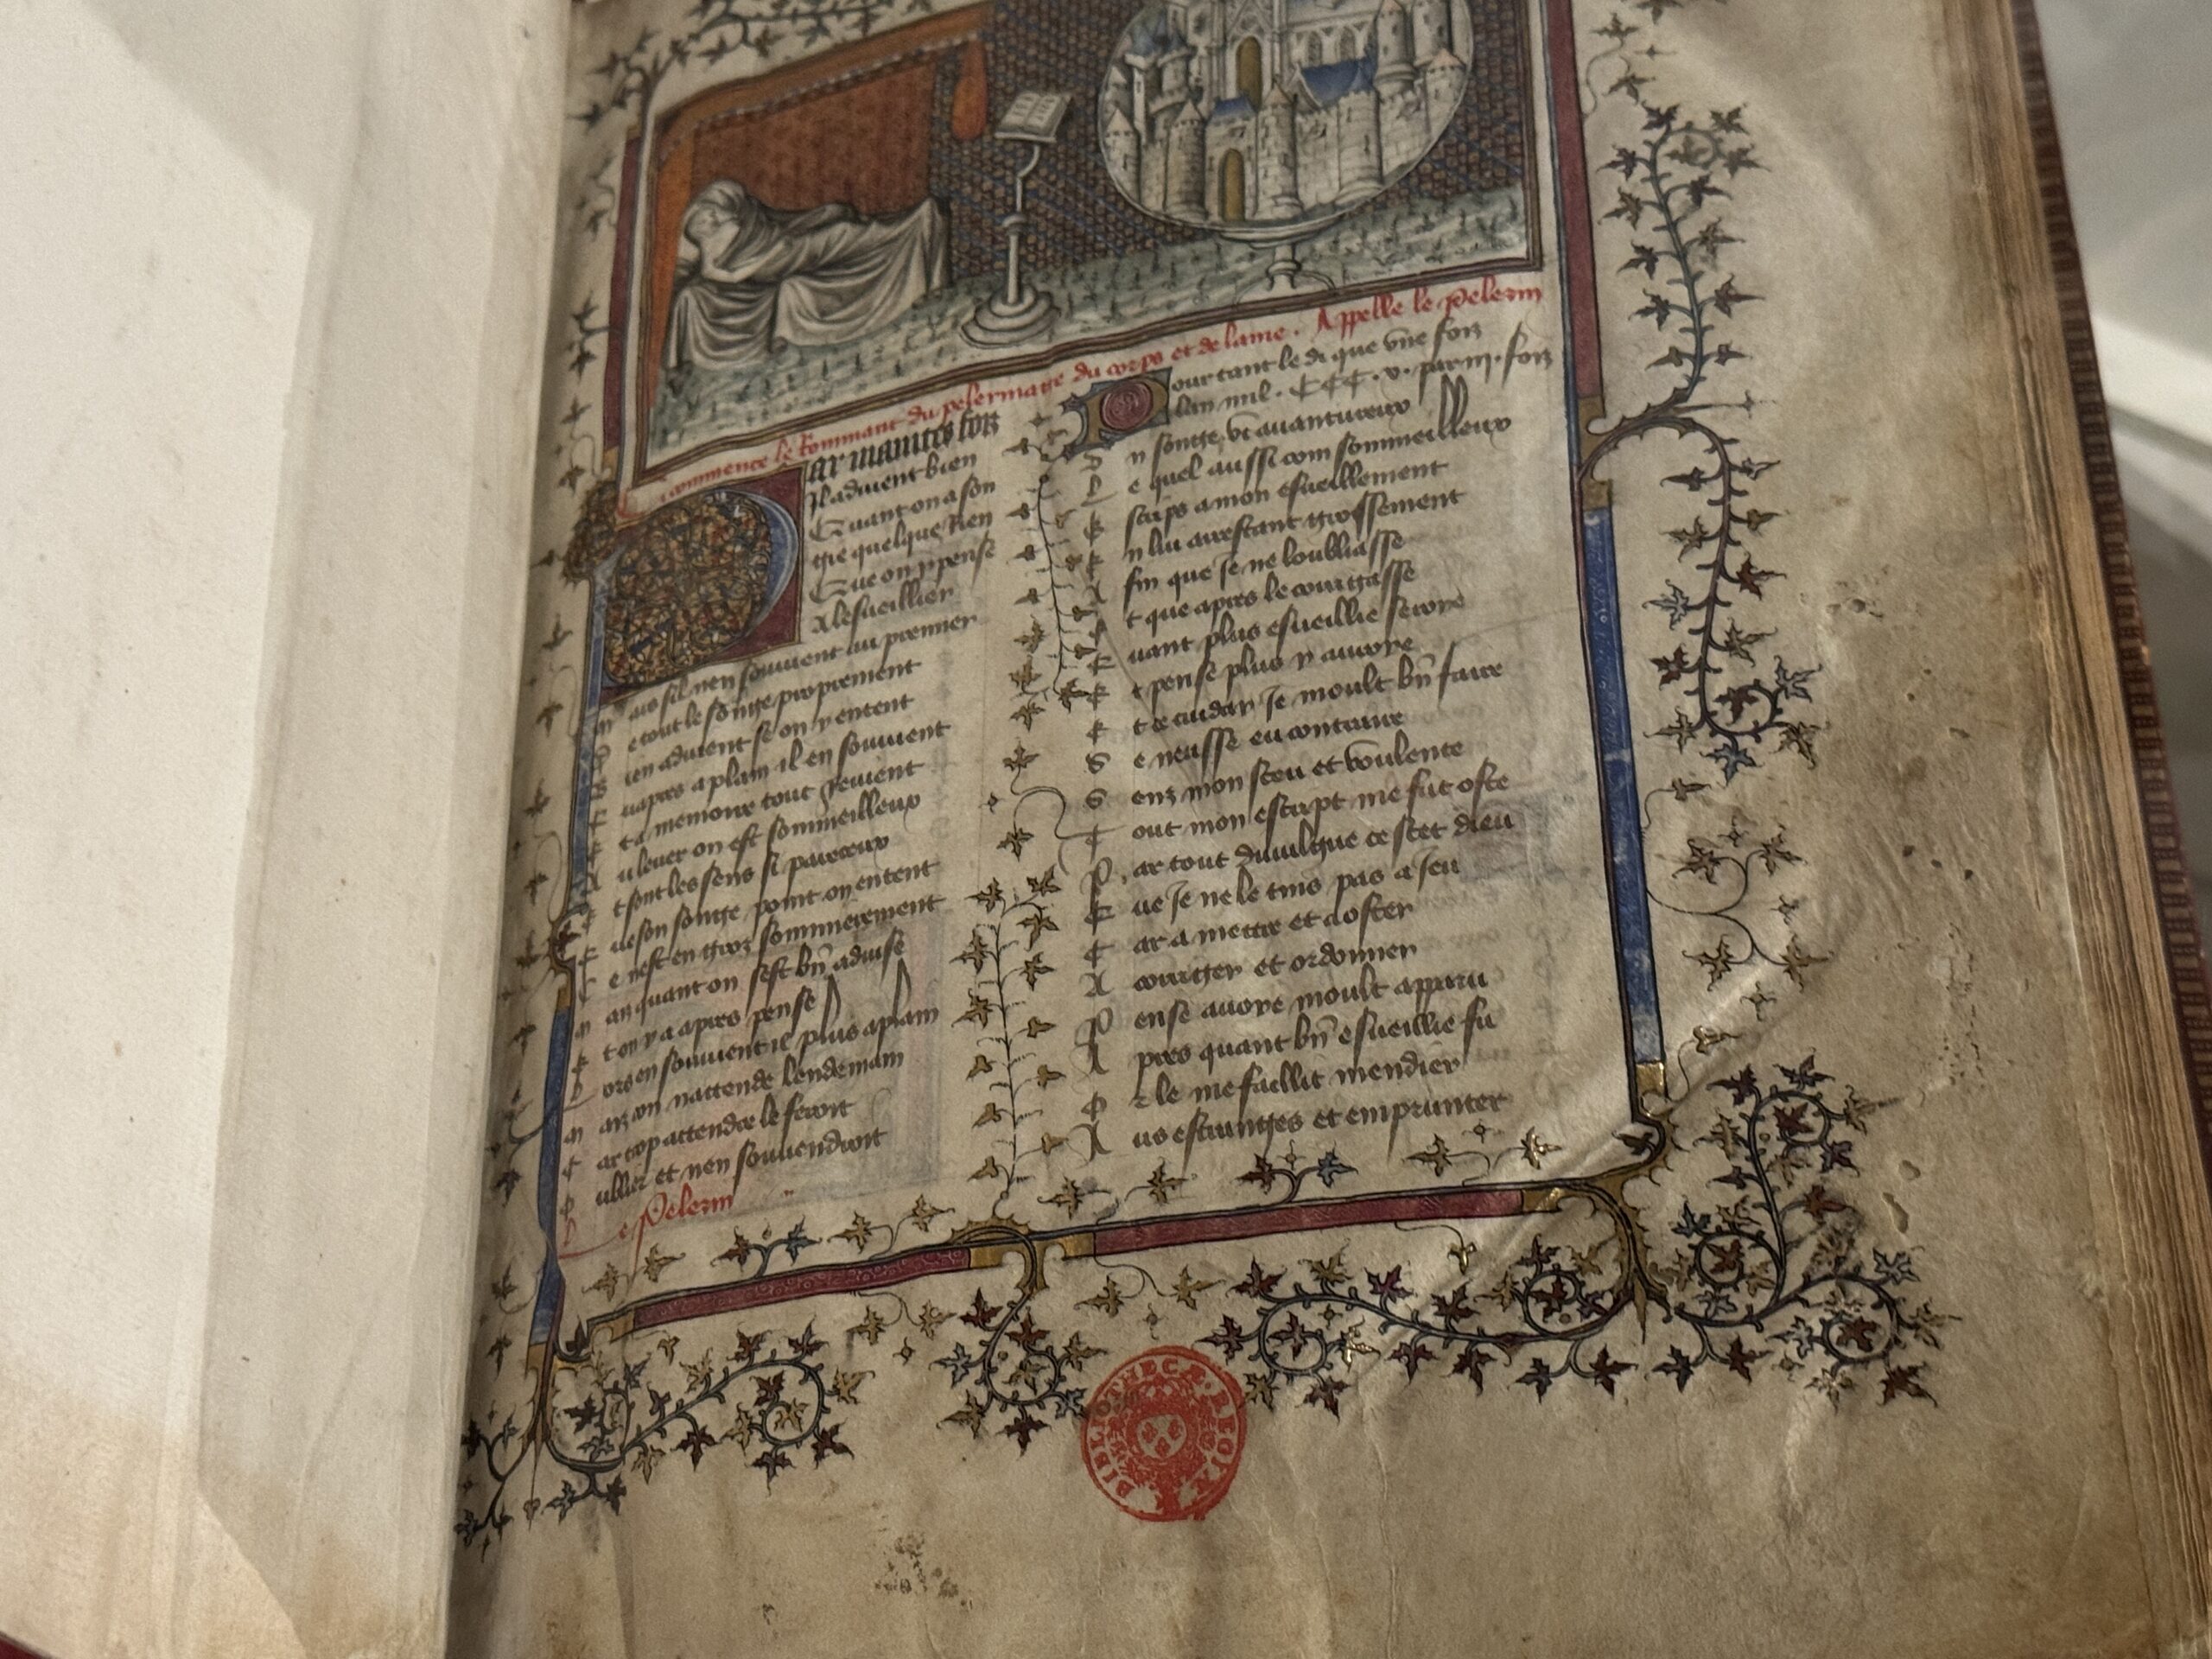 Commence le Rommant du pelermaige du corps et de lame. Appelle le Pelerin
Par maintes foiz
Il advient bien
Quant on a son
gie quelque Rien
Que on y pense
A lesueillier
M ais sil nen souuient au premier
D e tout le songe proprement
B ien aduient se on y entent
Q uapres a plain il en souuient
E t a memoire tout Reuient
A u leuer on est sommeilleux
E t sont les sens si pareceux
Q ue son songe point on entent
C e nest en groz sommierement
M ais quant on sest bn̄ aduise
E t on y a apres pense
L ors en souuient il plus a plain
M aiz on nattende lendemain
C ar trop attendre le feroit
O ublier et nen souuendroit
L e Pelerin
Pour tant le di que vne foiz
Lan mil. CCC. v. par iii. foiz
U n songe vi auantureux
L e quel aussi com sommeilleux
E scrips a mon esueillement
E n lui arrestant grossement
A fin que Je ne loubliasse
E t que apres le corrigasse
Q uant plus esueillie seroye
E t pense plus y auroye
E t ce cuiday Je moult bn̄ faire
S e neusse eu contraire
S enz mon sceu et voulente
T out mon escript me fut oste
P ar tout diuulgue ce scet dieu
Q ue Je ne le tins pas a Jeu
C ar a mettre et a oster
A corriger et ordonner
P ense auoye moult apparu
A pres quant bn̄ esueillie fu
O r le me faillit mendier
A us estranges et emprunter
BIBLIOTHECÆ REGIÆ